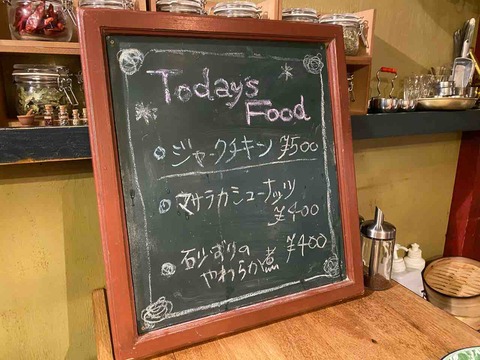 Today's
Food
ジャークチキン ¥500
マサラカシューナッツ
¥400
石少ずりの ¥400
やわらか煮